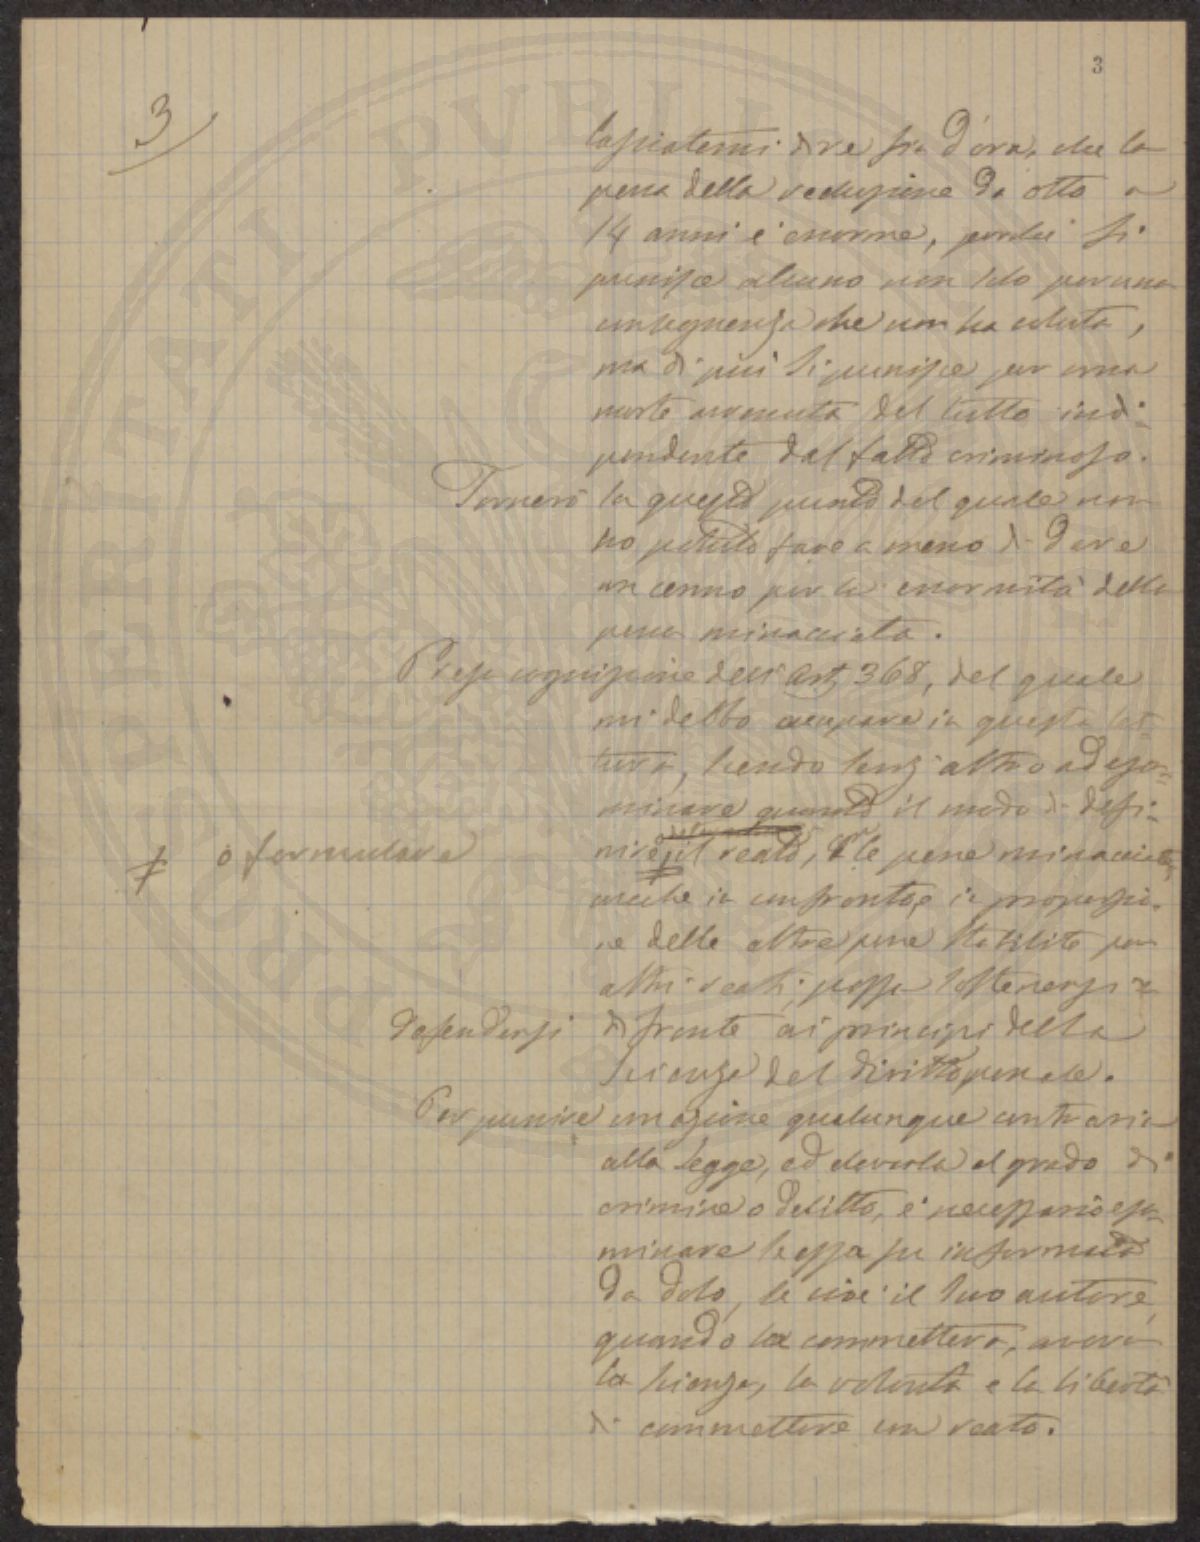 3
3
lasciatemi dire sin d'ora, che la
pena della reclusione da otto a
14 anni è enorme, perchè si
punisce alcuno non solo per una
conseguenza che non ha voluta,
ma di più si punisce per una
morte avvenuta del tutto indi-
pendente dal fatto criminoso.
Tornerò su questo punto del quale non
ho potuto fare a meno di dare
un cenno per la enormità della
pena minacciata.
Presa cognizione dell'art. 368, del quale
mi debbo occupare in questa let-
tura, scendo senz'altro ad esa-
minare il modo di defi-
nire o formulare il reato, le pene minacciate
anche in confronto, e in proporzio-
ne delle altre pene stabilite per
altri reati, possa sostenersi e
defendersi di fronte ai principi della
scienza del diritto penale.
Per punire un'azione qualunque contraria
alla legge, ed elevarla al grado di
crimine o delitto, è necessario esa-
minare se essa fu informata
da dolo, se cioè il suo autore,
quando la commetteva, aveva
la scienza, la volontà e la libertà
di commettere un reato.